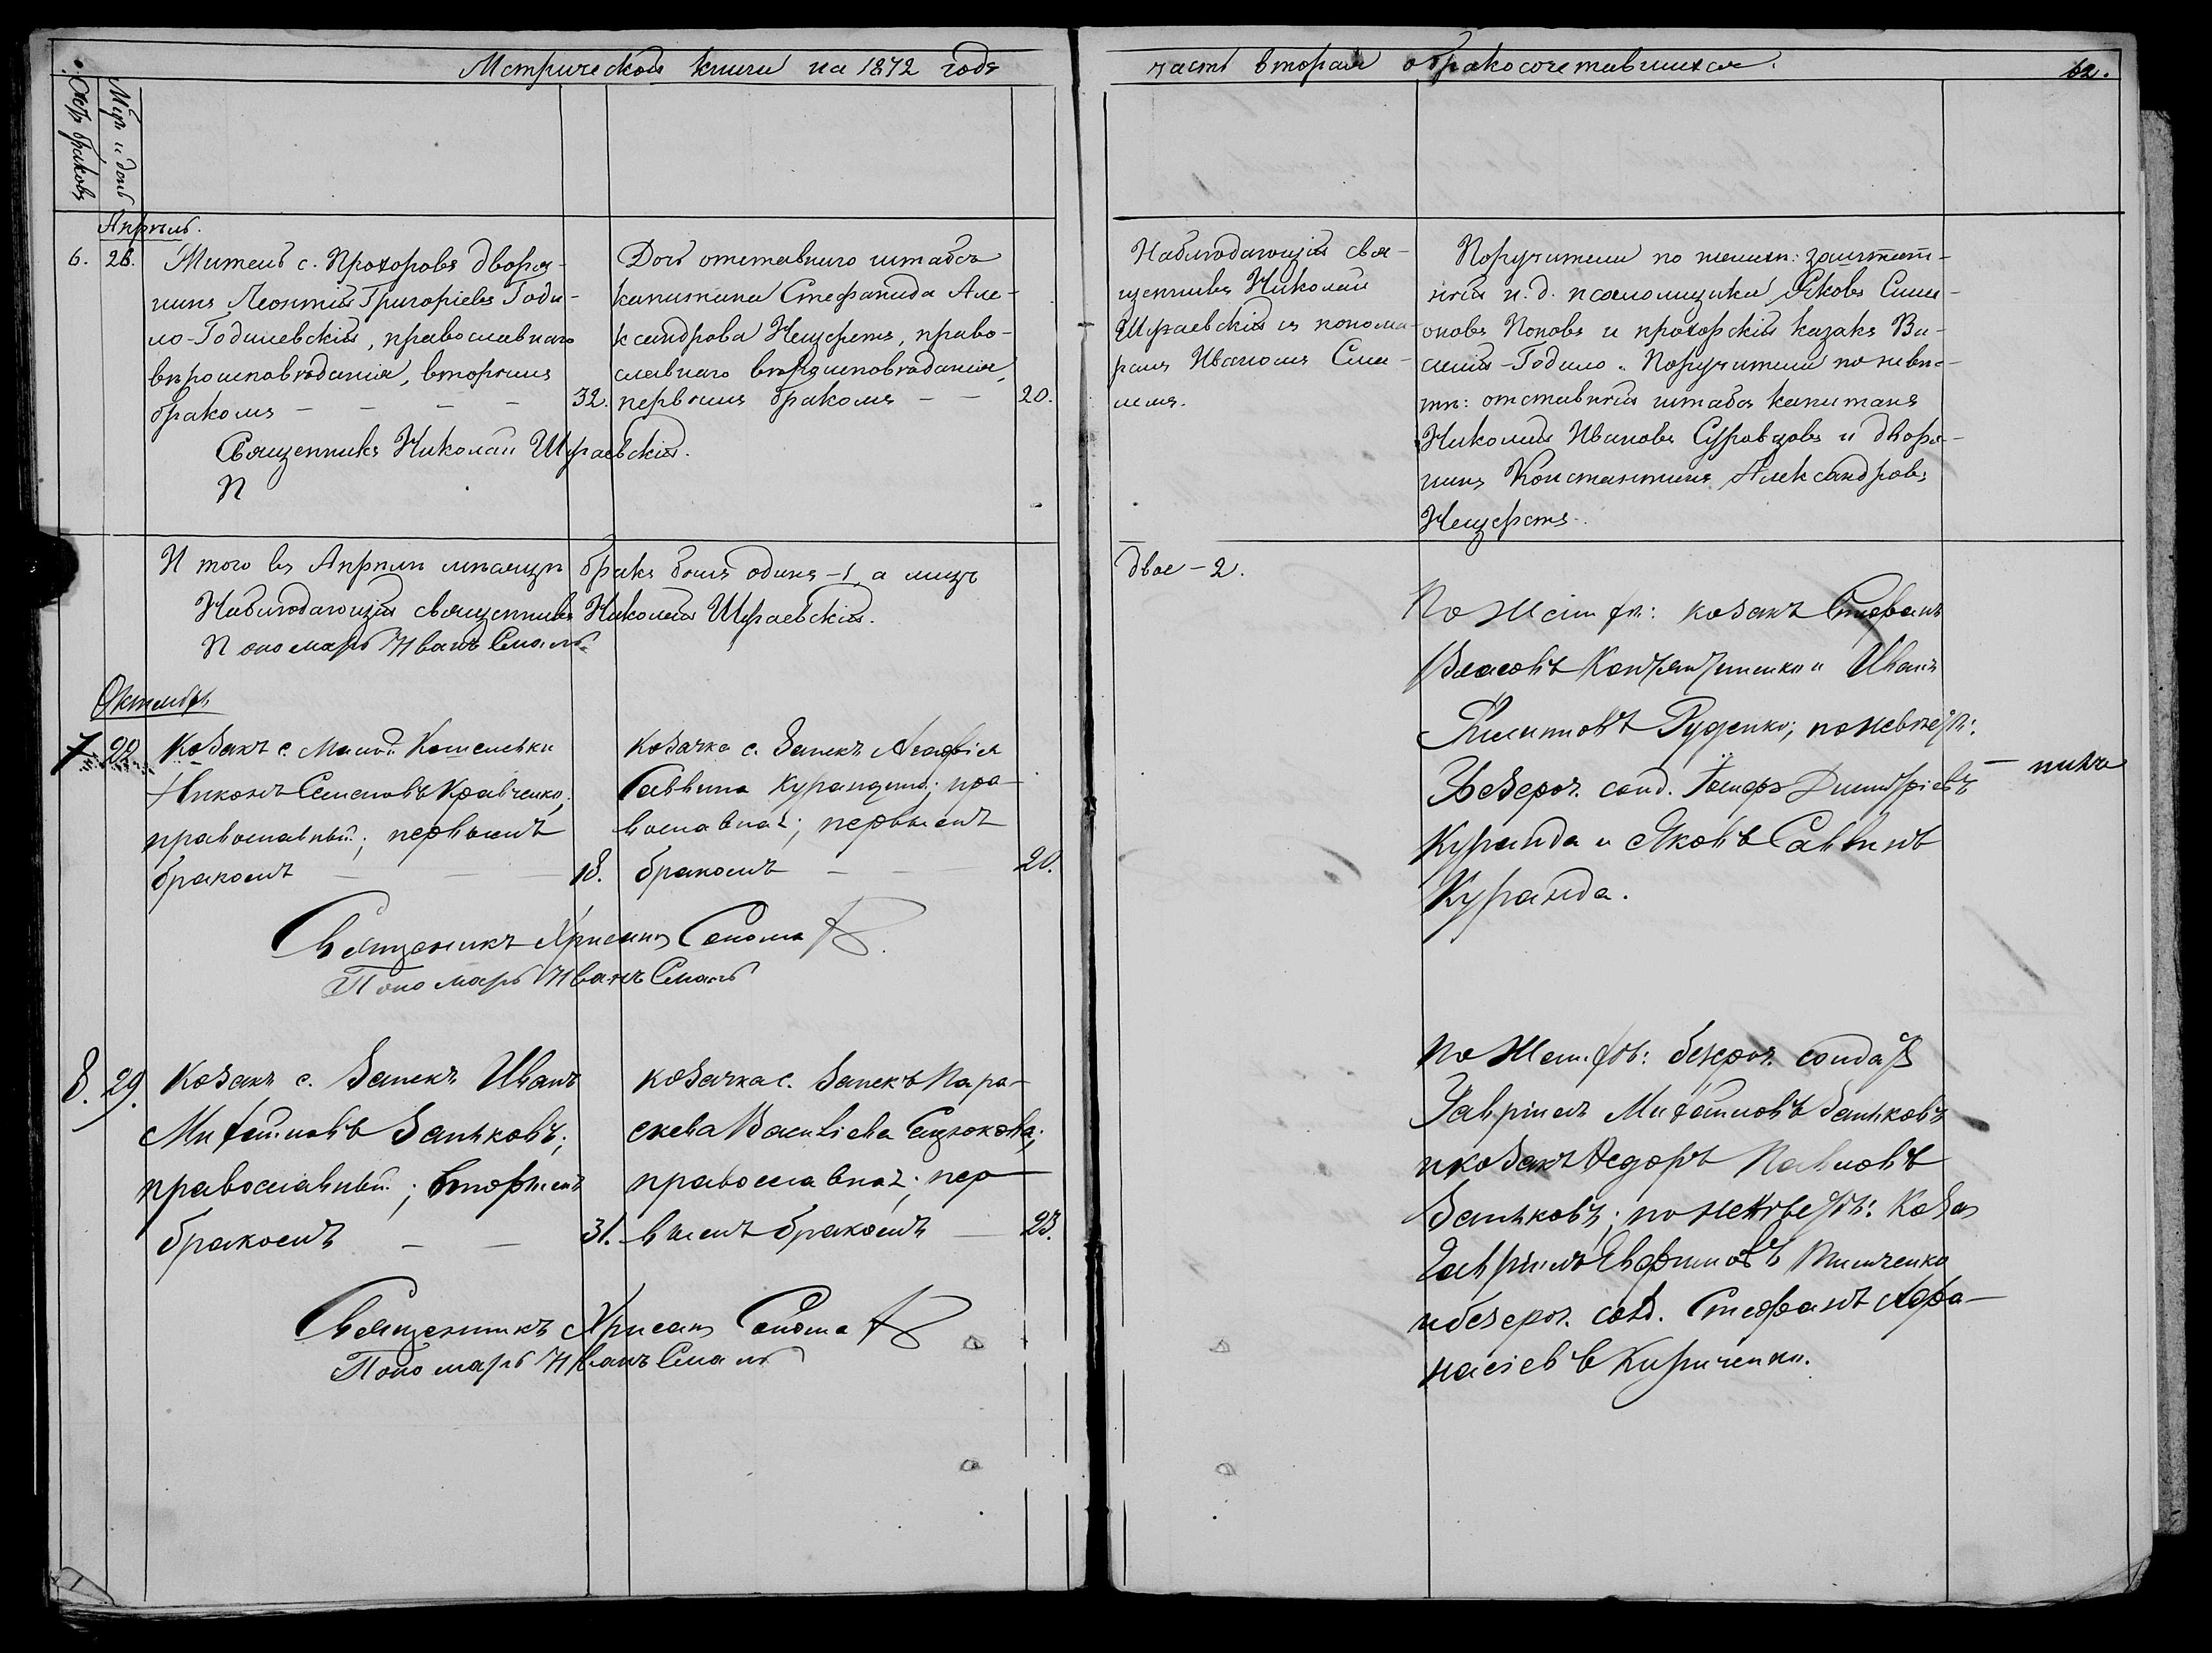 Метрической книги на 1872 годъ
часть вторая о бракосочетавшихся.
62.
Счетъ браковъ
Мѣс. и день
Апрѣль.
6. 26. Житель с. Прохоровъ дворя-
нинъ Леонтій Григоріевъ Годи-
ло-Годилевскій, православнаго
вѣроисповѣданія, вторымъ
бракомъ - - - - 32.
Дочь отставнаго штабсъ
капитана Стефанида Але-
ксандрова Нещеретъ, право-
славнаго вѣроисповѣданія,
первымъ бракомъ - - 20.
Священникъ Николай Шураевскій.
П
Наблюдающій свя-
щенникъ Николай
Шураевскій съ понома-
ремъ Иваномъ
Поручители по жениху: заштат-
ный и. д. псаломщика Яковъ Симе-
оновъ Поповъ и прохорскій казакъ Ва-
силій Годило. Поручители по невѣ-
стѣ: отставный штабсъ капитанъ
Николай Ивановъ Суровцовъ и дворя-
нинъ Константинъ Александровъ
Нещеретъ.
И того въ Апрѣлѣ мѣсяцѣ бракъ былъ одинъ - 1, а лицъ
двое - 2.
Наблюдающій священникъ Николай Шураевскій.
Пономарь Иванъ
Октябрь
7 22 Козакъ с. Малой Кошелевки
Никонъ Семеновъ Кравченко;
православный; первымъ
бракомъ - - - 18.
козачка с. Запекъ Агафія
Саввина Курандина; пра-
вославная; первымъ
бракомъ - - 20.
По женихѣ: козакъ Стефанъ
Власовъ и Иванъ
Филиповъ Руденко; по невѣстѣ:
Безсроч. солд. Іосифъ Димитріевъ
Куранда и Яковъ Саввинъ
Куранда.
Священникъ Хрисанф
Пономарь Иванъ
8. 29. Козакъ с. Запекъ Иванъ
Михайловъ Запьковъ;
православный; вторымъ
бракомъ - - 31.
козачка с. Запекъ Пара-
скева Василіева
православная; пер-
вымъ бракомъ - 23.
По женихѣ: безсроч. солдат
Гавріилъ Михайловъ Запьковъ
и козакъ Ѳедоръ Павловъ
Запьковъ; по невѣстѣ: Коза
Гавріилъ Евфимовъ
и безсроч. солд. Стефанъ Афа-
насіевъ Кириченко.
Священникъ Хрисанф
Пономарь Иванъ